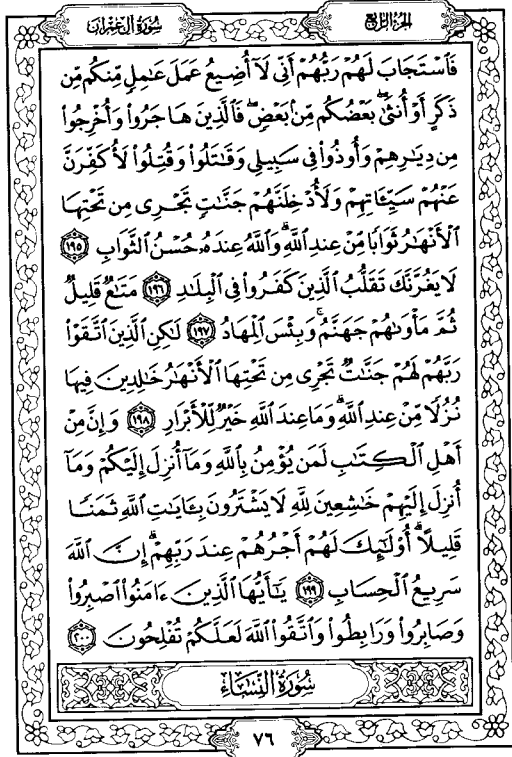 سُورَةُ آلِ عِمْرَانَ
الجُزْءُ الرَّابِعُ
فَٱسْتَجَابَ لَهُمْ رَبُّهُمْ أَنِّى لَآ أُضِيعُ عَمَلَ عَٰمِلٍ مِّنكُم مِّن
ذَكَرٍ أَوْ أُنثَىٰۖ بَعْضُكُم مِّنۢ بَعْضٍۖ فَٱلَّذِينَ هَاجَرُوا۟ وَأُخْرِجُوا۟
مِن دِيَٰرِهِمْ وَأُوذُوا۟ فِى سَبِيلِى وَقَٰتَلُوا۟ وَقُتِلُوا۟ لَأُكَفِّرَنَّ
عَنْهُمْ سَيِّـَٔاتِهِمْ وَلَأُدْخِلَنَّهُمْ جَنَّٰتٍ تَجْرِى مِن تَحْتِهَا
ٱلْأَنْهَٰرُ ثَوَابًا مِّنْ عِندِ ٱللَّهِۗ وَٱللَّهُ عِندَهُۥ حُسْنُ ٱلثَّوَابِ ١٩٥
لَا يَغُرَّنَّكَ تَقَلُّبُ ٱلَّذِينَ كَفَرُوا۟ فِى ٱلْبِلَٰدِ ١٩٦ مَتَٰعٌ قَلِيلٌ
ثُمَّ مَأْوَىٰهُمْ جَهَنَّمُۚ وَبِئْسَ ٱلْمِهَادُ ١٩٧ لَٰكِنِ ٱلَّذِينَ ٱتَّقَوْا۟
رَبَّهُمْ لَهُمْ جَنَّٰتٌ تَجْرِى مِن تَحْتِهَا ٱلْأَنْهَٰرُ خَٰلِدِينَ فِيهَا
نُزُلًا مِّنْ عِندِ ٱللَّهِۗ وَمَا عِندَ ٱللَّهِ خَيْرٌ لِّلْأَبْرَارِ ١٩٨ وَإِنَّ مِنْ
أَهْلِ ٱلْكِتَٰبِ لَمَن يُؤْمِنُ بِٱللَّهِ وَمَآ أُنزِلَ إِلَيْكُمْ وَمَآ
أُنزِلَ إِلَيْهِمْ خَٰشِعِينَ لِلَّهِ لَا يَشْتَرُونَ بِـَٔايَٰتِ ٱللَّهِ ثَمَنًا
قَلِيلًاۗ أُو۟لَٰٓئِكَ لَهُمْ أَجْرُهُمْ عِندَ رَبِّهِمْۗ إِنَّ ٱللَّهَ
سَرِيعُ ٱلْحِسَابِ ١٩٩ يَٰٓأَيُّهَا ٱلَّذِينَ ءَامَنُوا۟ ٱصْبِرُوا۟
وَصَابِرُوا۟ وَرَابِطُوا۟ وَٱتَّقُوا۟ ٱللَّهَ لَعَلَّكُمْ تُفْلِحُونَ ٢٠٠
سُورَةُ النِّسَاءِ
٧٦